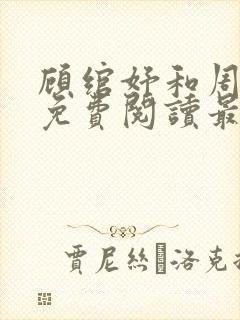 顾绾妤和周
免費閱讀最
賈尼絲 洛克